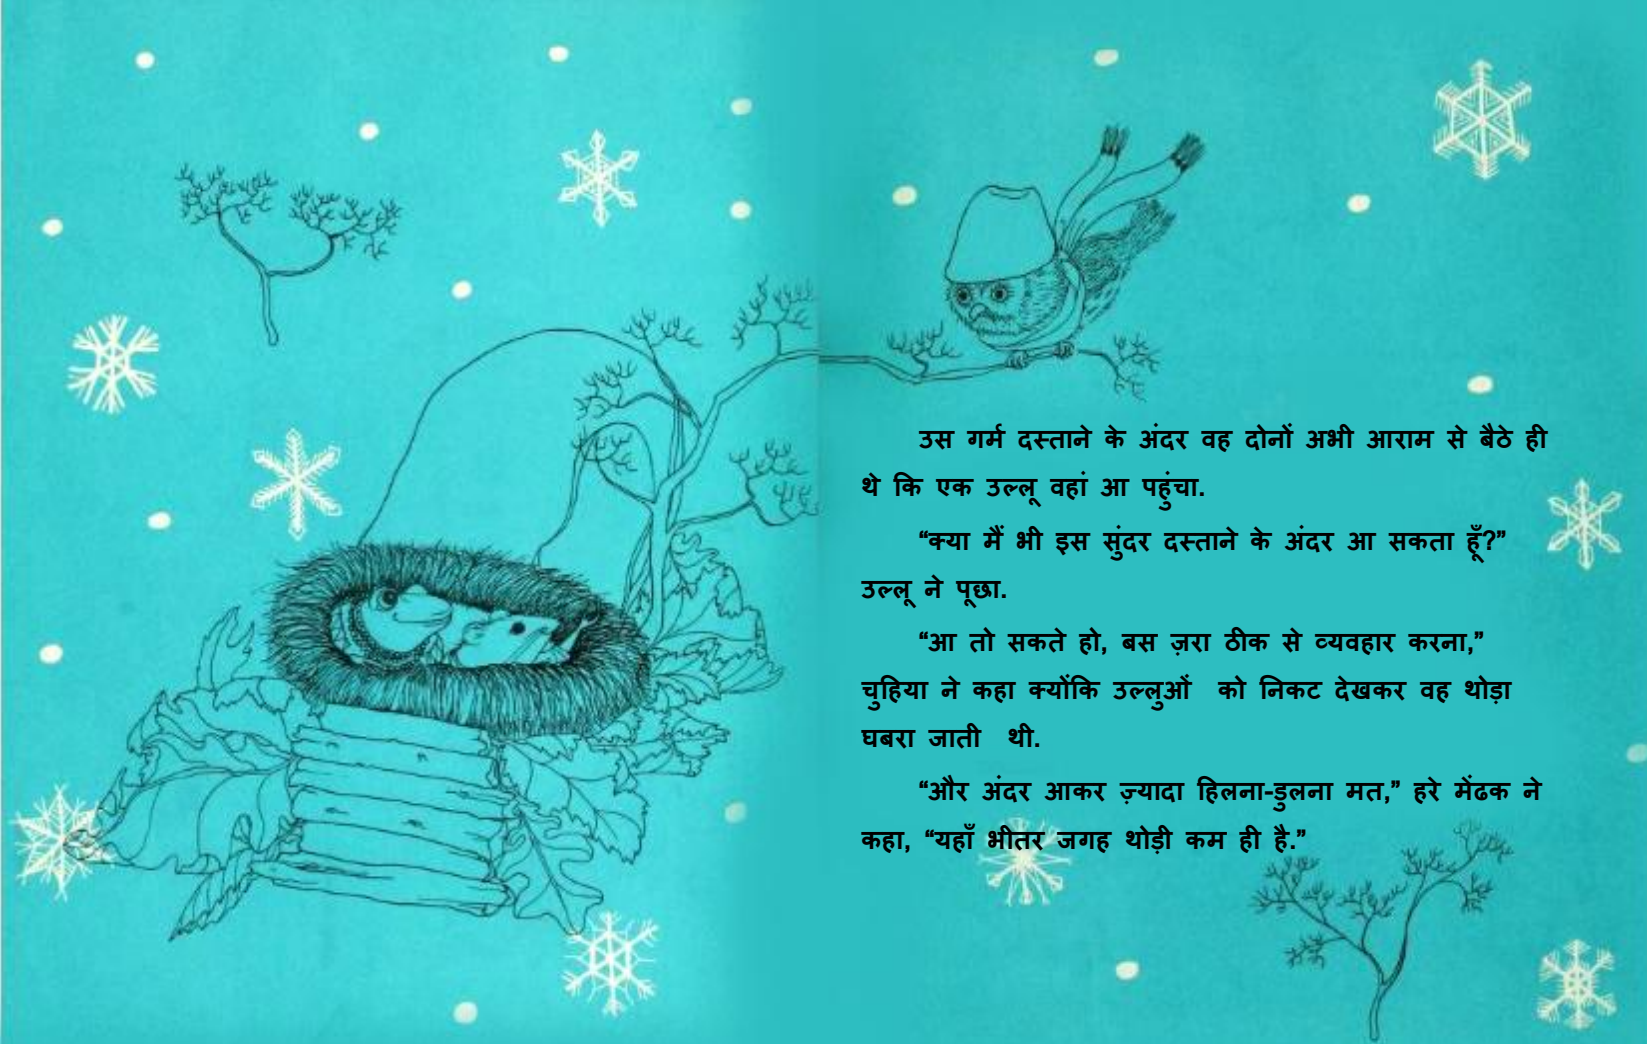 उस गर्म दस्ताने के अंदर वह दोनों अभी आराम से बैठे ही
थे कि एक उल्लू वहां आ पहुंचा.
“क्या मैं भी इस सुंदर दस्ताने के अंदर आ सकता हूँ?”
उल्लू ने पूछा.
“आ तो सकते हो, बस ज़रा ठीक से व्यवहार करना,”
चुहिया ने कहा क्योंकि उल्लुओं को निकट देखकर वह थोड़ा
घबरा जाती थी.
“और अंदर आकर ज़्यादा हिलना-डुलना मत,” हरे मेंढक ने
कहा, “यहाँ भीतर जगह थोड़ी कम ही है.”